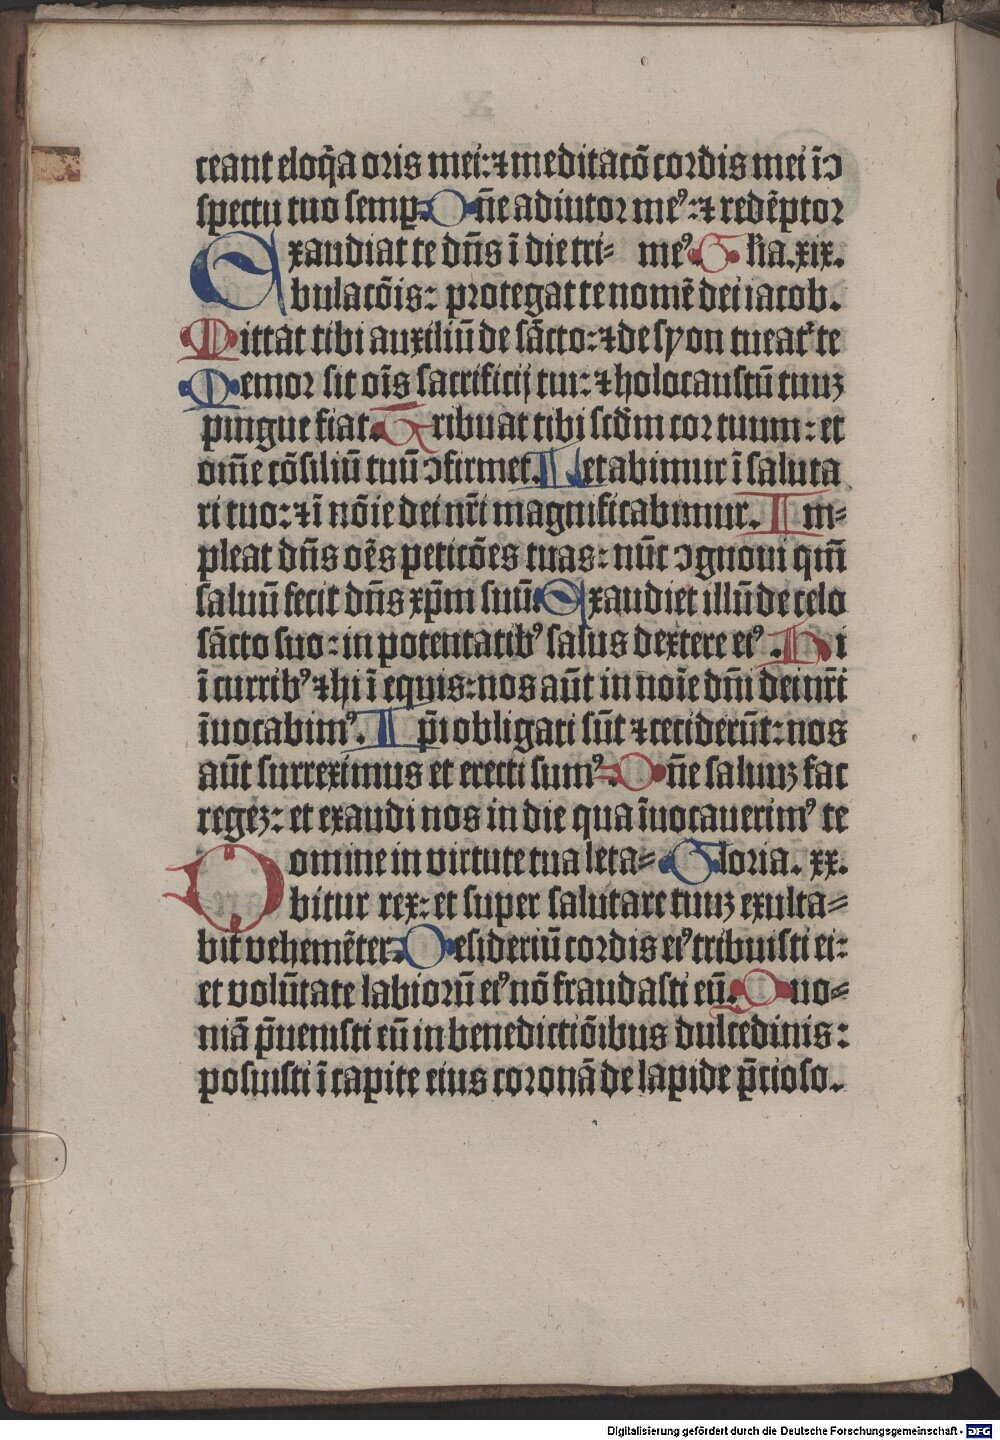 ceant eloq̃a oris mei: ⁊ meditacõ cordis mei ĩↄ
spectu tuo semꝑ Dñe adiutor meꝰ: ⁊ redẽptor
Exaudiat te dñs ĩ die tri⸗ meꝰ. Gl̃ia. xix.
bulacõis: protegat te nomẽ dei iacob.
Mittat tibi auxiliũ de sãcto: ⁊ de syon tueat᷑ te
Memor sit oĩs sacrificij tui: ⁊ holocaustũ tuuꝫ
pingue fiat. Tribuat tibi scd̃m cor tuum: et
om̃e cõsiliũ tuũ ↄfirmet. Letabimur ĩ saluta
ri tuo: ⁊ ĩ nõie dei nr̃i magnificabimur. Im⸗
pleat dñs oẽs peticões tuas: nũc ↄgnoui qm̃
saluũ fecit dñs xp̃m suũ. Exaudiet illũ de celo
sãcto suo: in potentatibꝰ salus dextere eiꝰ. Hi
ĩ curribꝰ ⁊ hi ĩ equis: nos aũt in noĩe dñi dei nr̃i
ĩuocabimꝰ. Ip̃i obligati sũt ⁊ ceciderũt: nos
aũt surreximus et erecti sumꝰ. Dñe saluuꝫ fac
regeꝫ: et exaudi nos in die qua ĩuocauerimꝰ te
Domine in virtute tua leta⸗ Gloria. xx.
bitur rex: et super salutare tuuꝫ exulta⸗
bit vehemẽter Desideriũ cordis eiꝰ tribuisti ei:
et volũtate labiorũ eiꝰ nõ fraudasti eũ. Quo⸗
niã p̃uenisti eũ in benedictiõibus dulcedinis:
posuisti ĩ capite eius coronã de lapide p̃cioso.
Digitalisierung gefördert durch die Deutsche Forschungsgemeinschaft - DFG